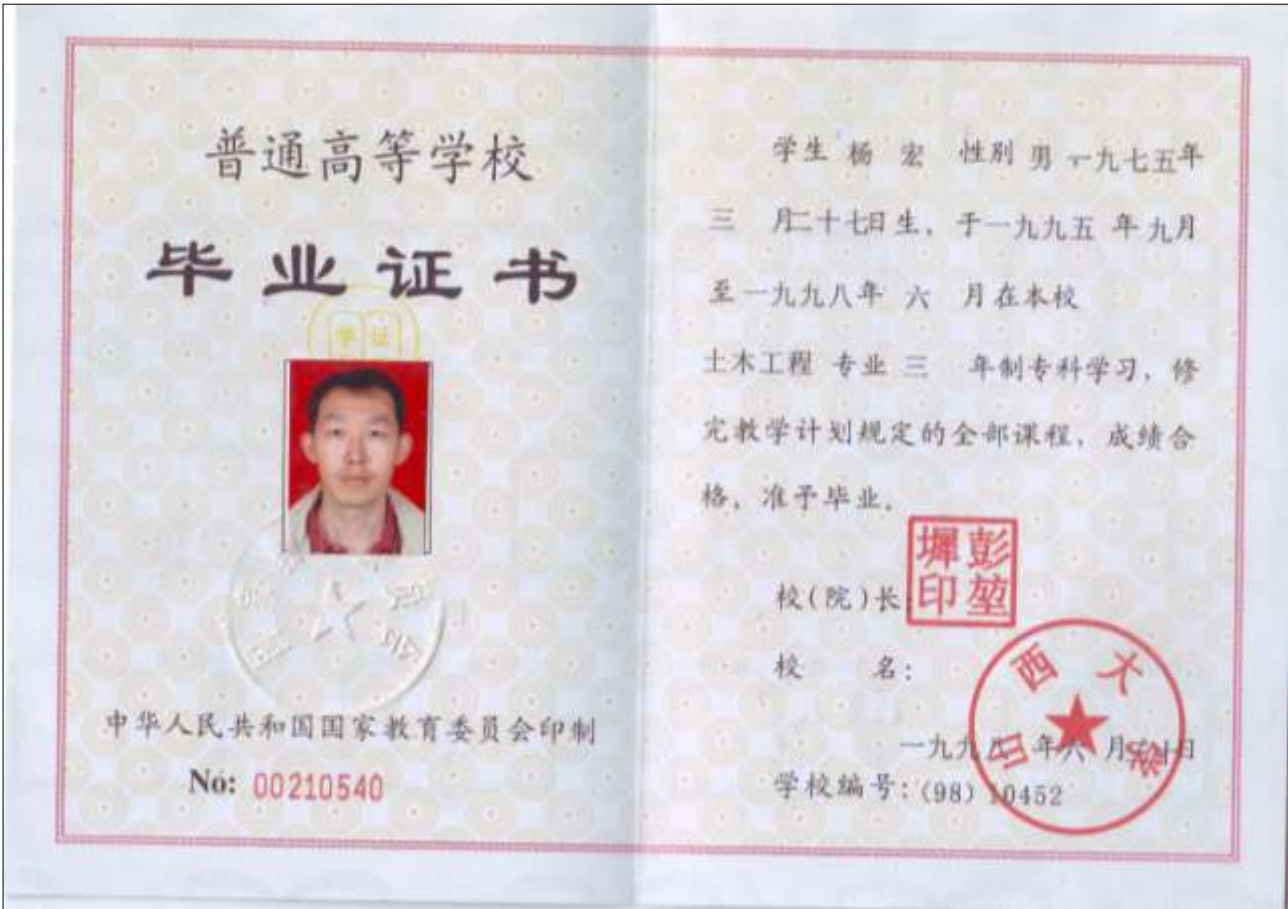 普通高等学校
毕业证书
学证
中华人民共和国国家教育委员会印制
No: 00210540
学生 杨 宏 性别 男 一九七五年
三 月二十七日生，于一九九五 年九月
至一九九八年 六 月在本校
土木工程 专业 三 年制专科学习，修
完教学计划规定的全部课程，成绩合
格，准予毕业。
校(院)长
彭堃墀印
校 名：
山西大学
一九九八 年六 月 日
学校编号：(98) 10452